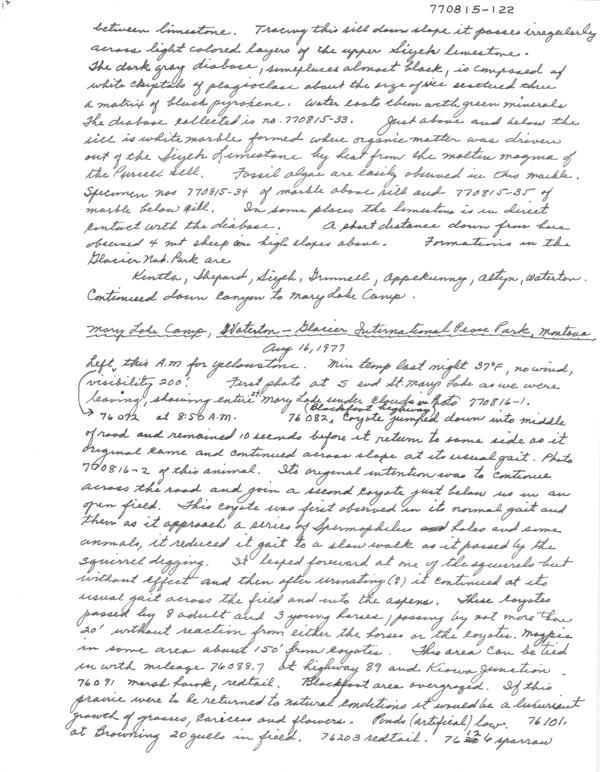 770815-122
between limestone. Tracing this sill down slope it passes irregularly
across light colored layers of the upper Siyeh limestone.
The dark gray diabase, someplaces almost black, is composed of
white crystals of plagioclase about the size of rice scattered thru
a matrix of black pyroxene. Water coats them with green minerals
The diabase collected is no. 770815-33. Just above and below the
sill is white marble formed where organic matter was driven
out of the Siyeh Limestone by heat from the molten magma of
the Purcell Sill. Fossil algae are easily observed in this marble.
Specimen nos 770815-34 of marble above sill and 770815-35 of
marble below sill. In some places the limestone is in direct
contact with the diabase. A short distance down from here
observed 4 mt sheep on high slopes above. Formations in the
Glacier Nat. Park are
Kintla, Shepard, Siyeh, Grinnell, Appekunny, Altyn, Waterton.
Continued down canyon to Mary Lake Camp.
Mary Lake Camp, Waterton-Glacier International Peace Park, Montana
Aug 16, 1977
Left this A.M for Yellowstone. Min temp last night 37°F, no wind,
visibility 200'. First photo at S end St. Mary Lake as we were
leaving, showing entire St Mary Lake under clouds in Foto 770816-1.
76072 at 8:50 A.M. 76082, (Blackfoot highway) Coyote jumped down into middle
of road and remained 10 seconds before it return to same side as it
original came and continued across slope at its usual gait. Photo
770816-2 of this animal. Its original intention was to continue
across the road and join a second coyote just below us in an
open field. This coyote was first observed in its normal gait and
then as it approach a series of Spermophilus holes and some
animals, it reduced it gait to a slow walk as it passed by the
squirrel digging. It leaped foreward at one of the squirrels but
without effect and then after urinating (?) it continued at its
usual gait across the field and into the aspens. These coyotes
passed by 8 adult and 3 young horses, passing by not more than
20' without reaction from either the horses or the coyotes. Magpie
in same area about 150' from coyotes. This area can be tied
in with mileage 76088.7 at highway 89 and Kiowa Junction.
76091 marsh hawk, redtail. Blackfoot area overgrazed. If this
prairie were to be returned to natural conditions it would be a luxuriant
growth of grasses, and flowers. Ponds (artificial) low. 76101.
at Browning 20 gulls in field. 76203 redtail. sparrow